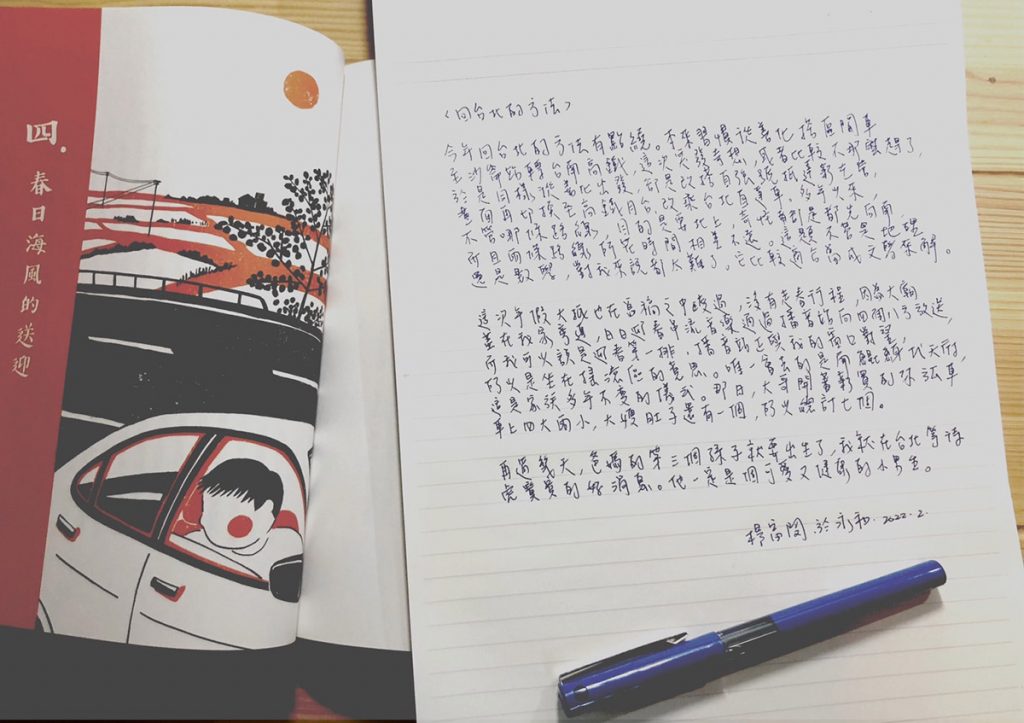 四.
春日海風的送迎
〈回台北的方法〉
今年回台北的方法有點繞。本來習慣從善化搭區間車
至沙崙站轉台南高鐵,這次突發奇想,或者比較不那麼趕了,
於是同樣從善化出發,卻是改搭自強號抵達新左營,
者面再切換至高鐵月台,改乘台北直達車。多年以來,
不管哪條路線,目的是要北上,去城市到是都先向南
所且兩條路線所花時間相差不遠。這題不管是地理
還是數學,對我來說都太難了,它比較適合當成文學來解。
這次年假大抵也在咫禍之中度過,沒有走春行程,因為大廟
差在我家旁邊,日日迎春串流音樂通過播音站向四周八方放送,
所我可以說是迎春第一排,播音站正與我的窗口對望,
好似是坐在搖滾區的意思。唯一會去的是南鯤鯓代天府,
這是家族多年不變的儀式。那日,大哥開著新買的休旅車
車上四大兩小,大嫂肚子還有一個,好以總計七個。
再過幾天,爸媽的第三個孫子就要出生了,我就在台北等待
虎寶寶的好消息。他一定是個可愛又健康的小男生。
楊富閔.於永和.2022.2.